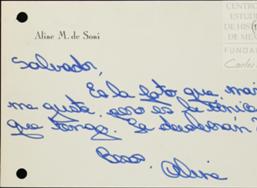 Aline M. de Soni
CENTRO
ESTUD
DE HIS
DE MÉX
FUNDA
Carlos
Salvador,
Es la foto que más
me gusta, pero es la única
que tengo. Se devolverán?
Besos, Aline